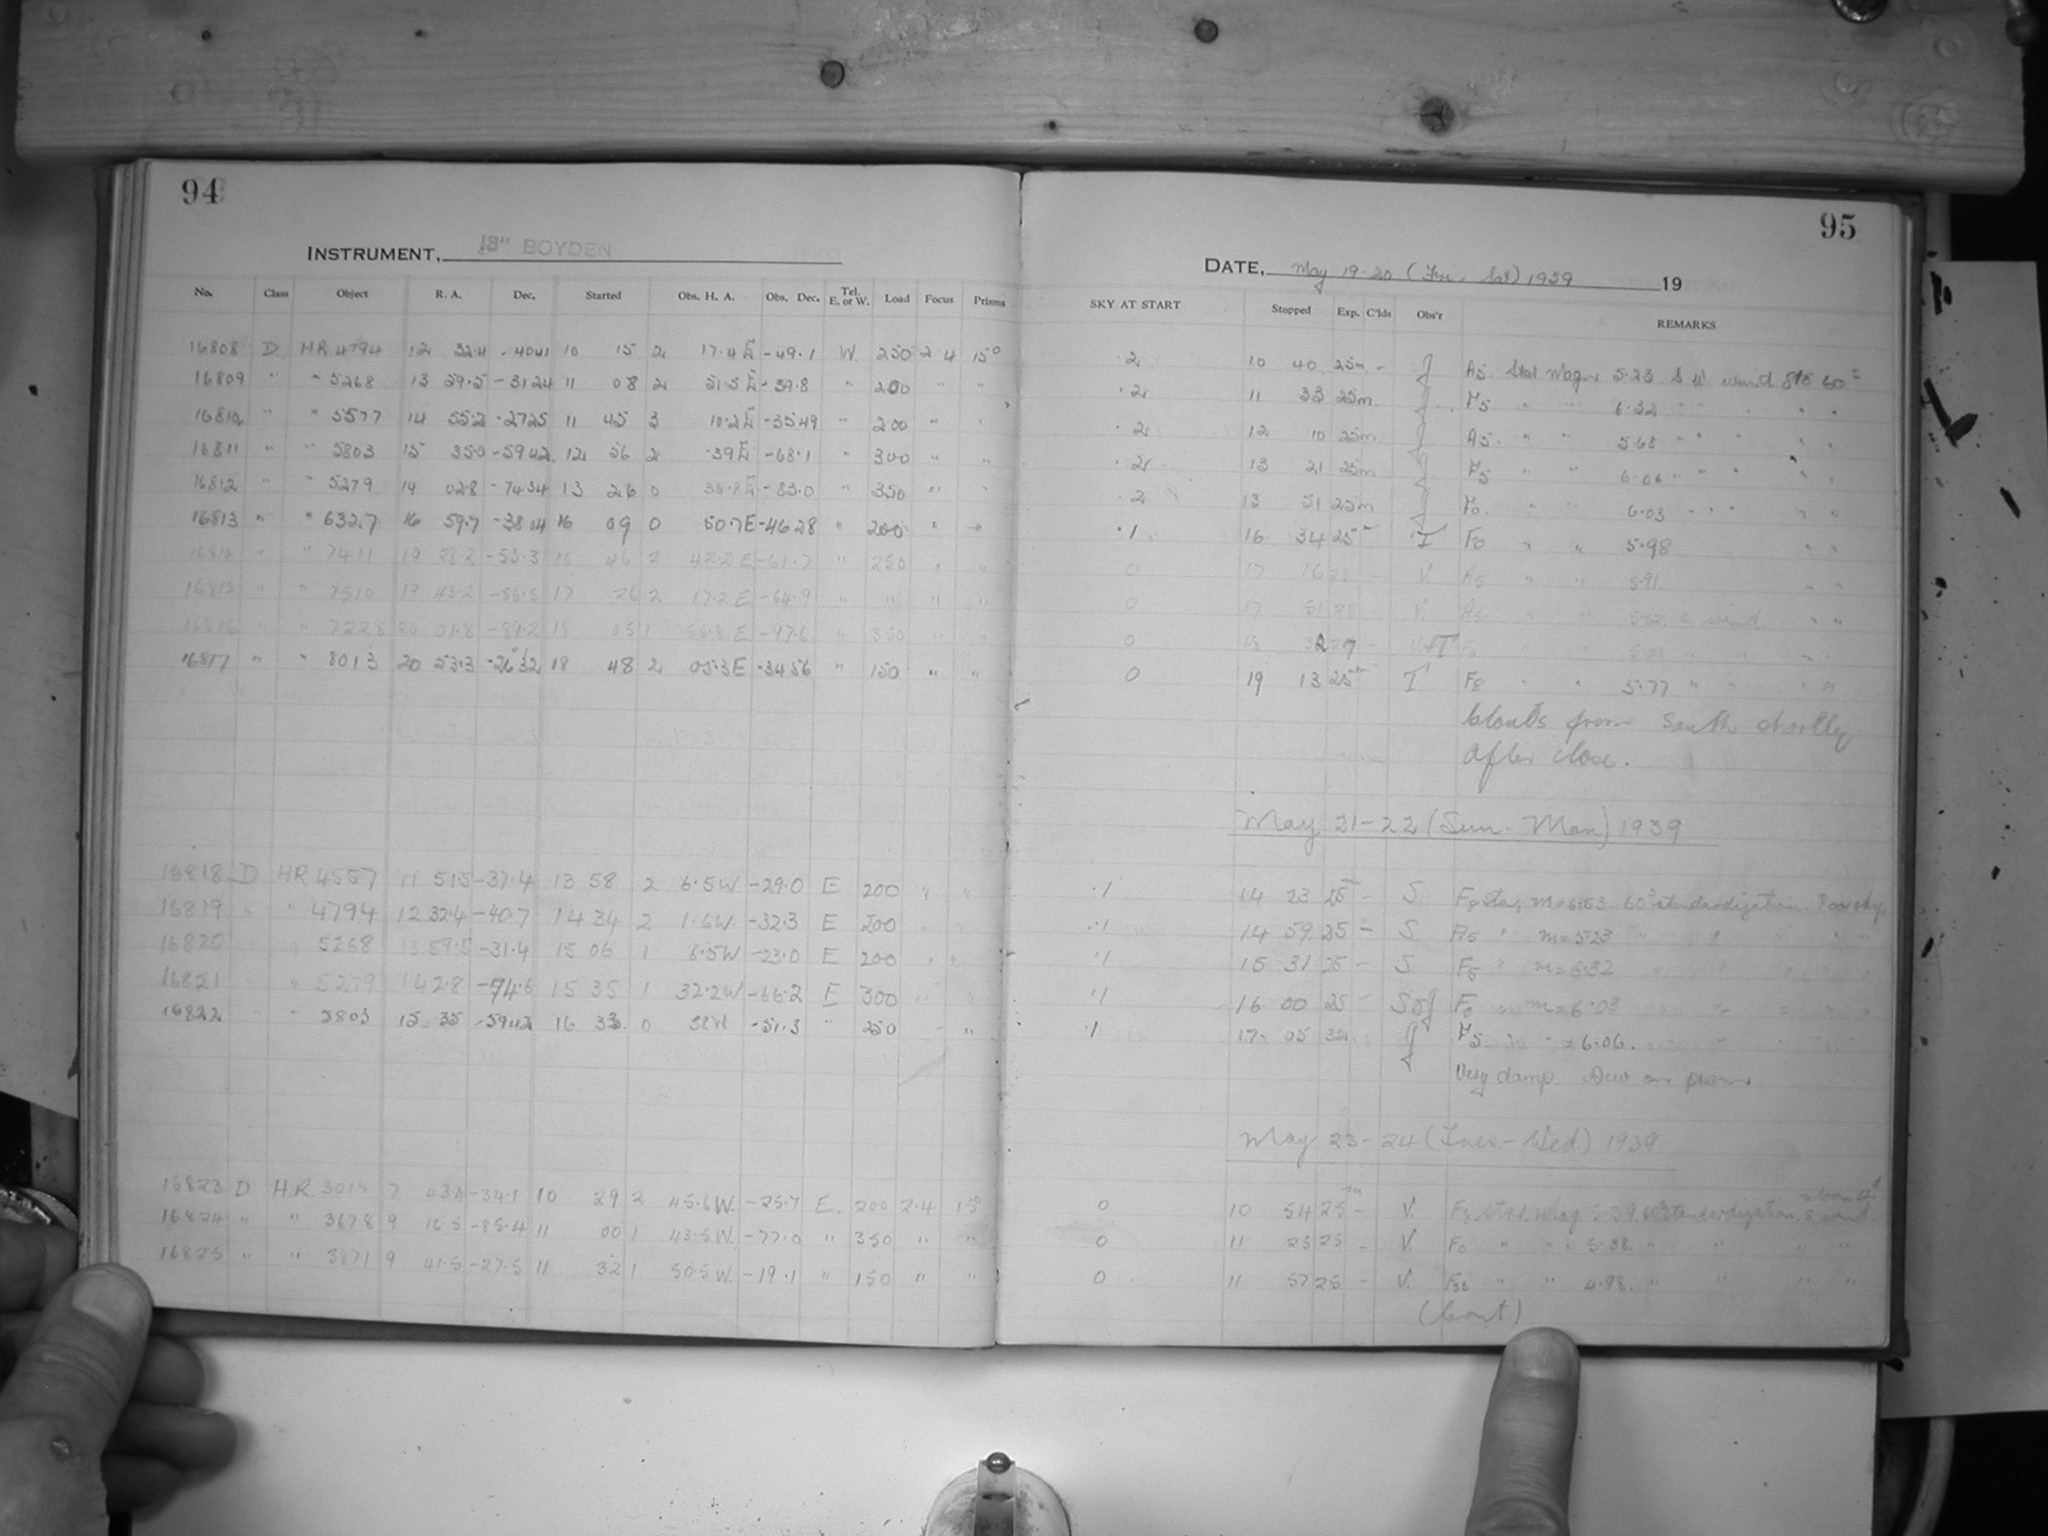 94
INSTRUMENT, 13" BOYDEN
No. Class Object R. A. Dec. Started Obs. H. A. Obs. Dec. Tel. E. or W. Load Focus Prisms
16808 D HR 4794 12 32.4 -4041 10 15 2 17.4 E -49.1 W. 250 2 4 15°
16809 " " 5268 13 59.5 -3124 11 08 2 51.5 E -39.8 " 200 " "
16810 " " 5577 14 55.2 -2725 11 45 3 10.2 E -3549 " 200 " "
16811 " " 5803 15 35.0 -5942 12 56 2 39 E -68.1 " 300 " "
16812 " " 5279 14 02.8 -7434 13 26 0 -83.0 " 350 " "
16813 " " 6327 16 59.7 -3804 16 09 0 50.7 E -4628 " 200 " "
16814 " " 7411 19 28.2 -53.3 16 46 2 42.2 E -61.7 " 250 " "
16815 " " 7510 19 43.2 -56.5 17 26 2 17.2 E -64.9 " " " "
16816 " " 7228 20 01.8 -89.2 18 05 1 56.8 E -97.6 " 350 " "
16817 " " 8013 20 53.3 -26°32' 18 48 2 05.3 E -3456 " 150 " "
16818 D HR 4557 11 51.5 -37.4 13 58 2 6.5 W -29.0 E 200 " "
16819 " " 4794 12 32.4 -40.7 14 34 2 1.6 W. -32.3 E 200
16820 " " 5268 13 59.5 -31.4 15 06 1 6.5 W -23.0 E 200 " "
16821 " " 5279 14 2.8 -74.6 15 35 1 32.2 W -66.2 E 300 " "
16822 " 5803 15 35 -5942 16 33 0 -51.3 " 250 - "
16823 D H.R. 3018 7 43.1 -34.1 10 29 2 45.6 W. -25.7 E. 200 2.4 15°
16824 " " 3678 9 16.5 -85.4 11 00 1 43.5 W. -77.0 " 350 " "
16825 " " 3871 9 41.5 -27.5 11 32 1 50.5 W. -19.1 " 150 " "
95
DATE, May 19-20 (Fri - Sat) 1939 19
SKY AT START Stopped Exp. C'lds Obs'r REMARKS
.2 10 40 25m - J A5 Star Magn 5.23 S W. wind
.2 11 33 25m J F5 " " 6.32 " "
.2 12 10 25m J A5 " " 5.68 " " " "
.2 13 21 25m J F5 " " 6.06 " " " "
.2 13 51 25m J F0 " " 6.03 - " " "
.1 16 34 25m T F0 " " 5.98 " "
0 17 16 25 - V. A5 " " 5.91. " "
0 17 51 25 - V. A5 " " 5.52 S. wind. " "
0 18 32 27 - V+T F0 " "
0 19 13 25m T F8 " " 5.77 " " " "
Clouds from South shortly
after close.
May 21-22 (Sun - Mon) 1939
.1 14 23 25m - S F8 star, m=6.53 60s standardization. Poor sky.
.1 14 59 25 - S. A5 " m=5.23 " " " "
.1 15 31 25 - S F5 " m=6.32
.1 16 00 25 - S & J F0 m=6.03
.1 17 05 32 J F5 = 6.06.
Very damp. Dew on prism
May 23-24 (Tues. - Wed.) 1939
0 10 54 25m - V. F8 star. Mag 5.39. 60s standardization. S. wind.
0 11 25 25 - V. F0 " " 5.38. " " " "
0 11 57 25 - V. " " 4.98. " " " "
(Cont.)